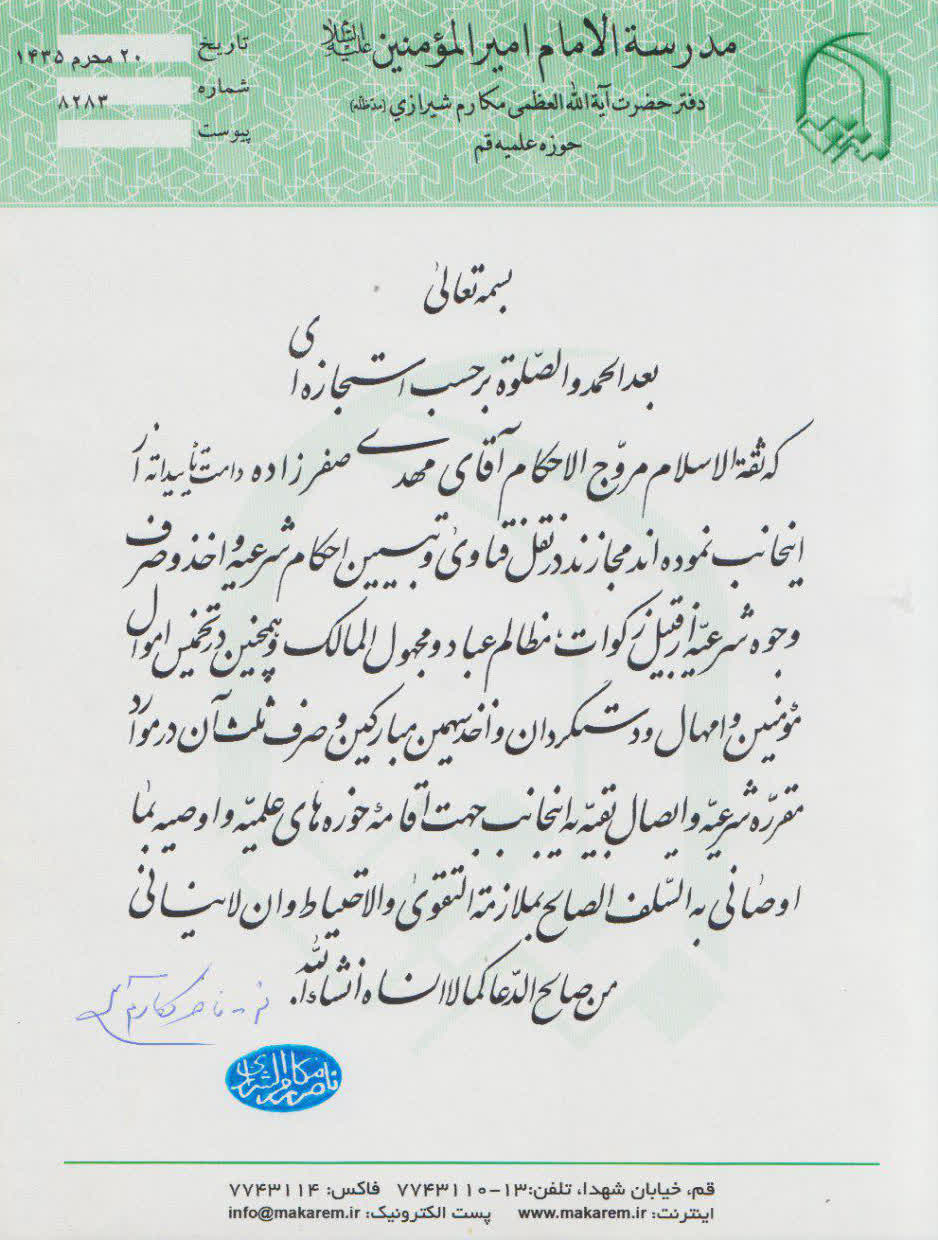 مدرسة الامام امیرالمؤمنین علیه السلام
دفتر حضرت آیة الله العظمی مکارم شیرازی (مدظله)
حوزه علمیه قم
تاریخ ۲۰ محرم ۱۴۳۵
شماره ۸۲۸۳
پیوست
بسمه تعالیٰ
بعد الحمد والصّلوة برحسب استجازه ای
که ثقة الاسلام مروّج الاحکام آقای مهدی صفرزاده دامت تأییداته از
اینجانب نموده اند مجازند در نقل فتاویٰ و تبیین احکام شرعیه و اخذ و صرف
وجوه شرعیّه از قبیل زکوات، مظالم عباد و مجهول المالک و همچنین در تخمیس اموال
مؤمنین و امهال و دستگردان و اخذ سهمین مبارکین و صرف ثلث آن در موارد
مقرّره شرعیّه و ایصال بقیّه به اینجانب جهت اقامهٔ حوزه های علمیّه و اوصیه بمٰا
اوصٰانی به السّلف الصالح بملازمة التقویٰ والاحتیاط وان لاینسانی
من صالح الدّعا کما لا انساه انشاءالله.
ناصر مکارم الشیرازی
قم، خیابان شهدا، تلفن: ۱۳-۷۷۴۳۱۱۰ فاکس: ۷۷۴۳۱۱۴
اینترنت: www.makarem.ir پست الکترونیک: info@makarem.ir